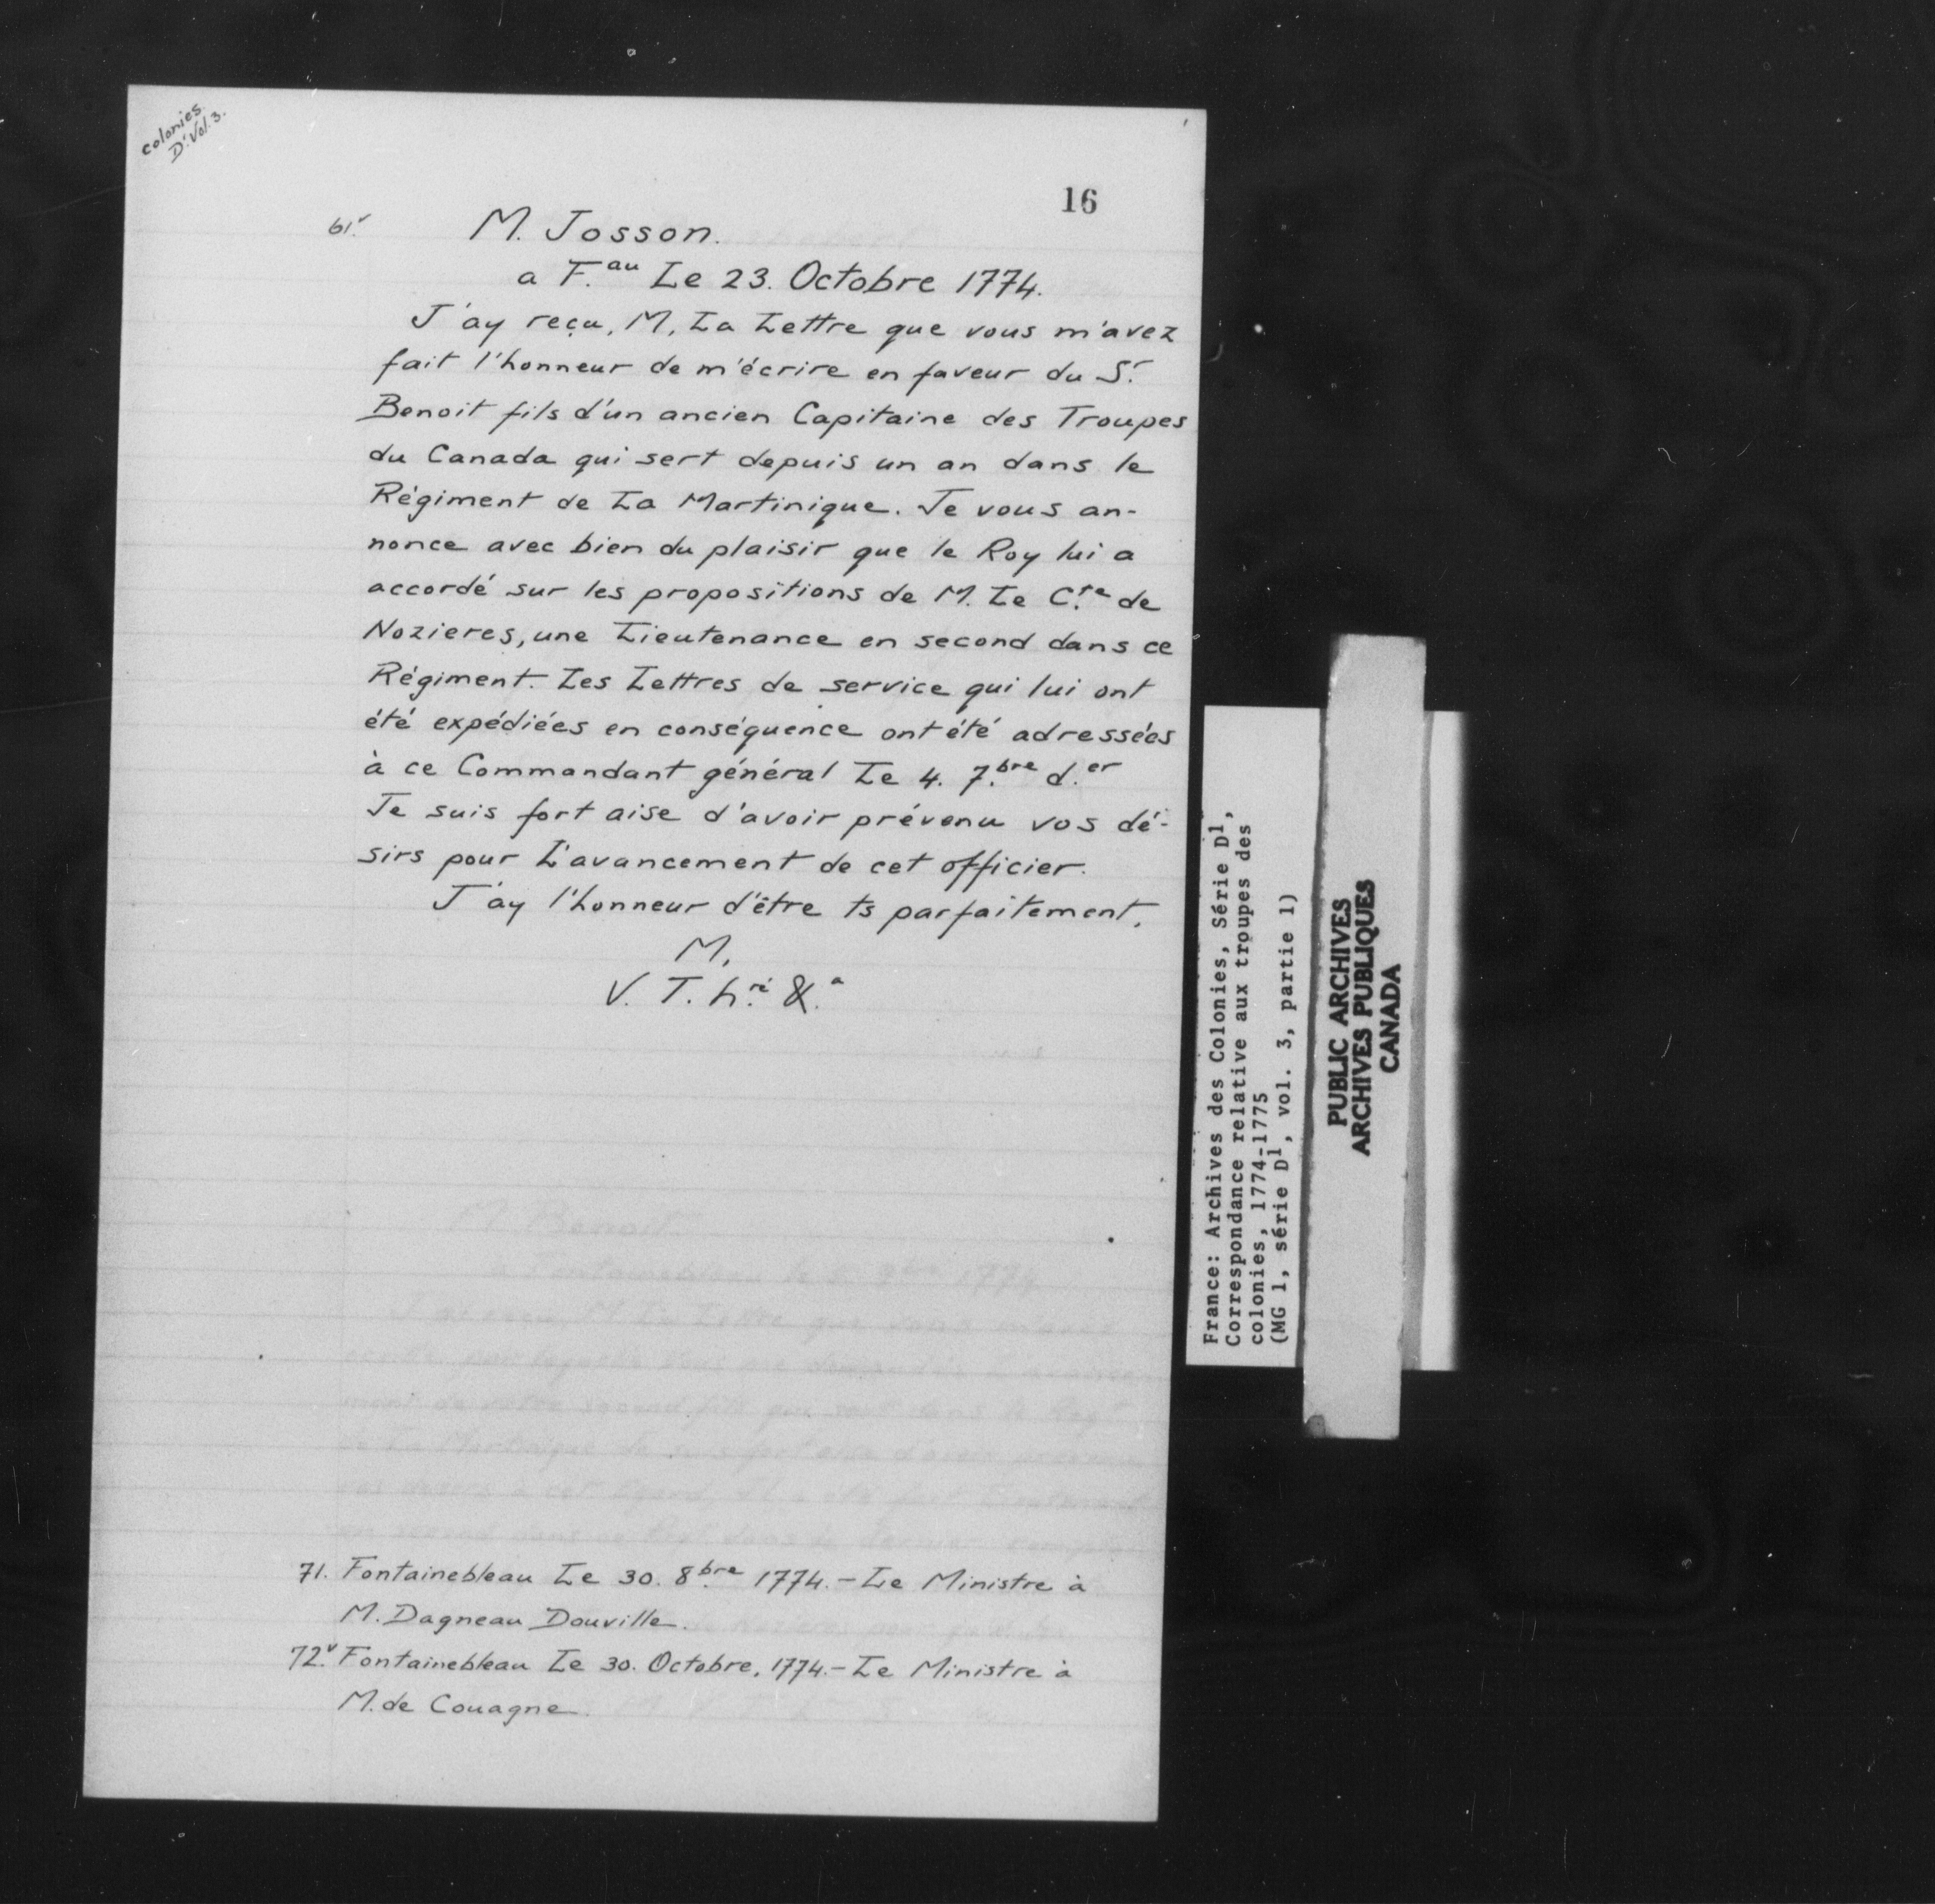 colonies
D¹. Vol. 3.
16
61.v
M. Josson.
a F.au Le 23. Octobre 1774.
J'ay reçu, M, La Lettre que vous m'avez
fait l'honneur de m'écrire en faveur du S.r
Benoit fils d'un ancien Capitaine des Troupes
du Canada qui sert depuis un an dans le
Régiment de La Martinique. Je vous an-
nonce avec bien du plaisir que le Roy lui a
accordé sur les propositions de M. Le C.te de
Nozieres, une Lieutenance en second dans ce
Régiment. Les Lettres de service qui lui ont
été expédiées en conséquence ont été adressées
à ce Commandant général Le 4. 7.bre d.er
Je suis fort aise d'avoir prévenu vos dé-
sirs pour L'avancement de cet officier.
J'ay l'honneur d'être ts parfaitement,
M,
V. T. h.ré &.a
71. Fontainebleau Le 30. 8.bre 1774. - Le Ministre à
M. Dagneau Douville.
72.v Fontainebleau Le 30. Octobre, 1774. - Le Ministre à
M. de Couagne.
France: Archives des Colonies, Série D¹,
Correspondance relative aux troupes des
colonies, 1774-1775
(MG 1, série D¹, vol. 3, partie 1)
PUBLIC ARCHIVES
ARCHIVES PUBLIQUES
CANADA